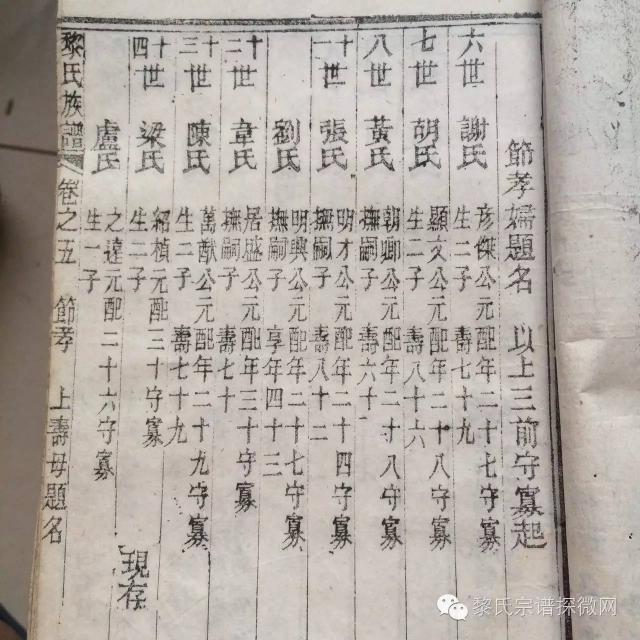 節孝婦題名 以上三前守寡起
六世 謝氏 彥傑公元配年二十七守寡
生二子 壽七十九
七世 胡氏 顯文公元配年二十八守寡
生二子 壽八十六
八世 黃氏 朝卿公元配年二十八守寡
撫嗣子 壽六十
十一世 張氏 明才公元配年二十四守寡
撫嗣子 壽八十二
劉氏 明興公元配年二十七守寡
撫嗣子 享年四十三
十二世 韋氏 居盛公元配年三十守寡
撫嗣子 壽七十
十三世 陳氏 萬猷公元配年二十九守寡
生二子 壽七十九
十四世 梁氏 紹楨元配三十守寡
生二子
盧氏 之達元配二十六守寡 現存
生一子
黎氏族譜 卷之五 節孝 上壽母題名
黎氏宗谱探微网